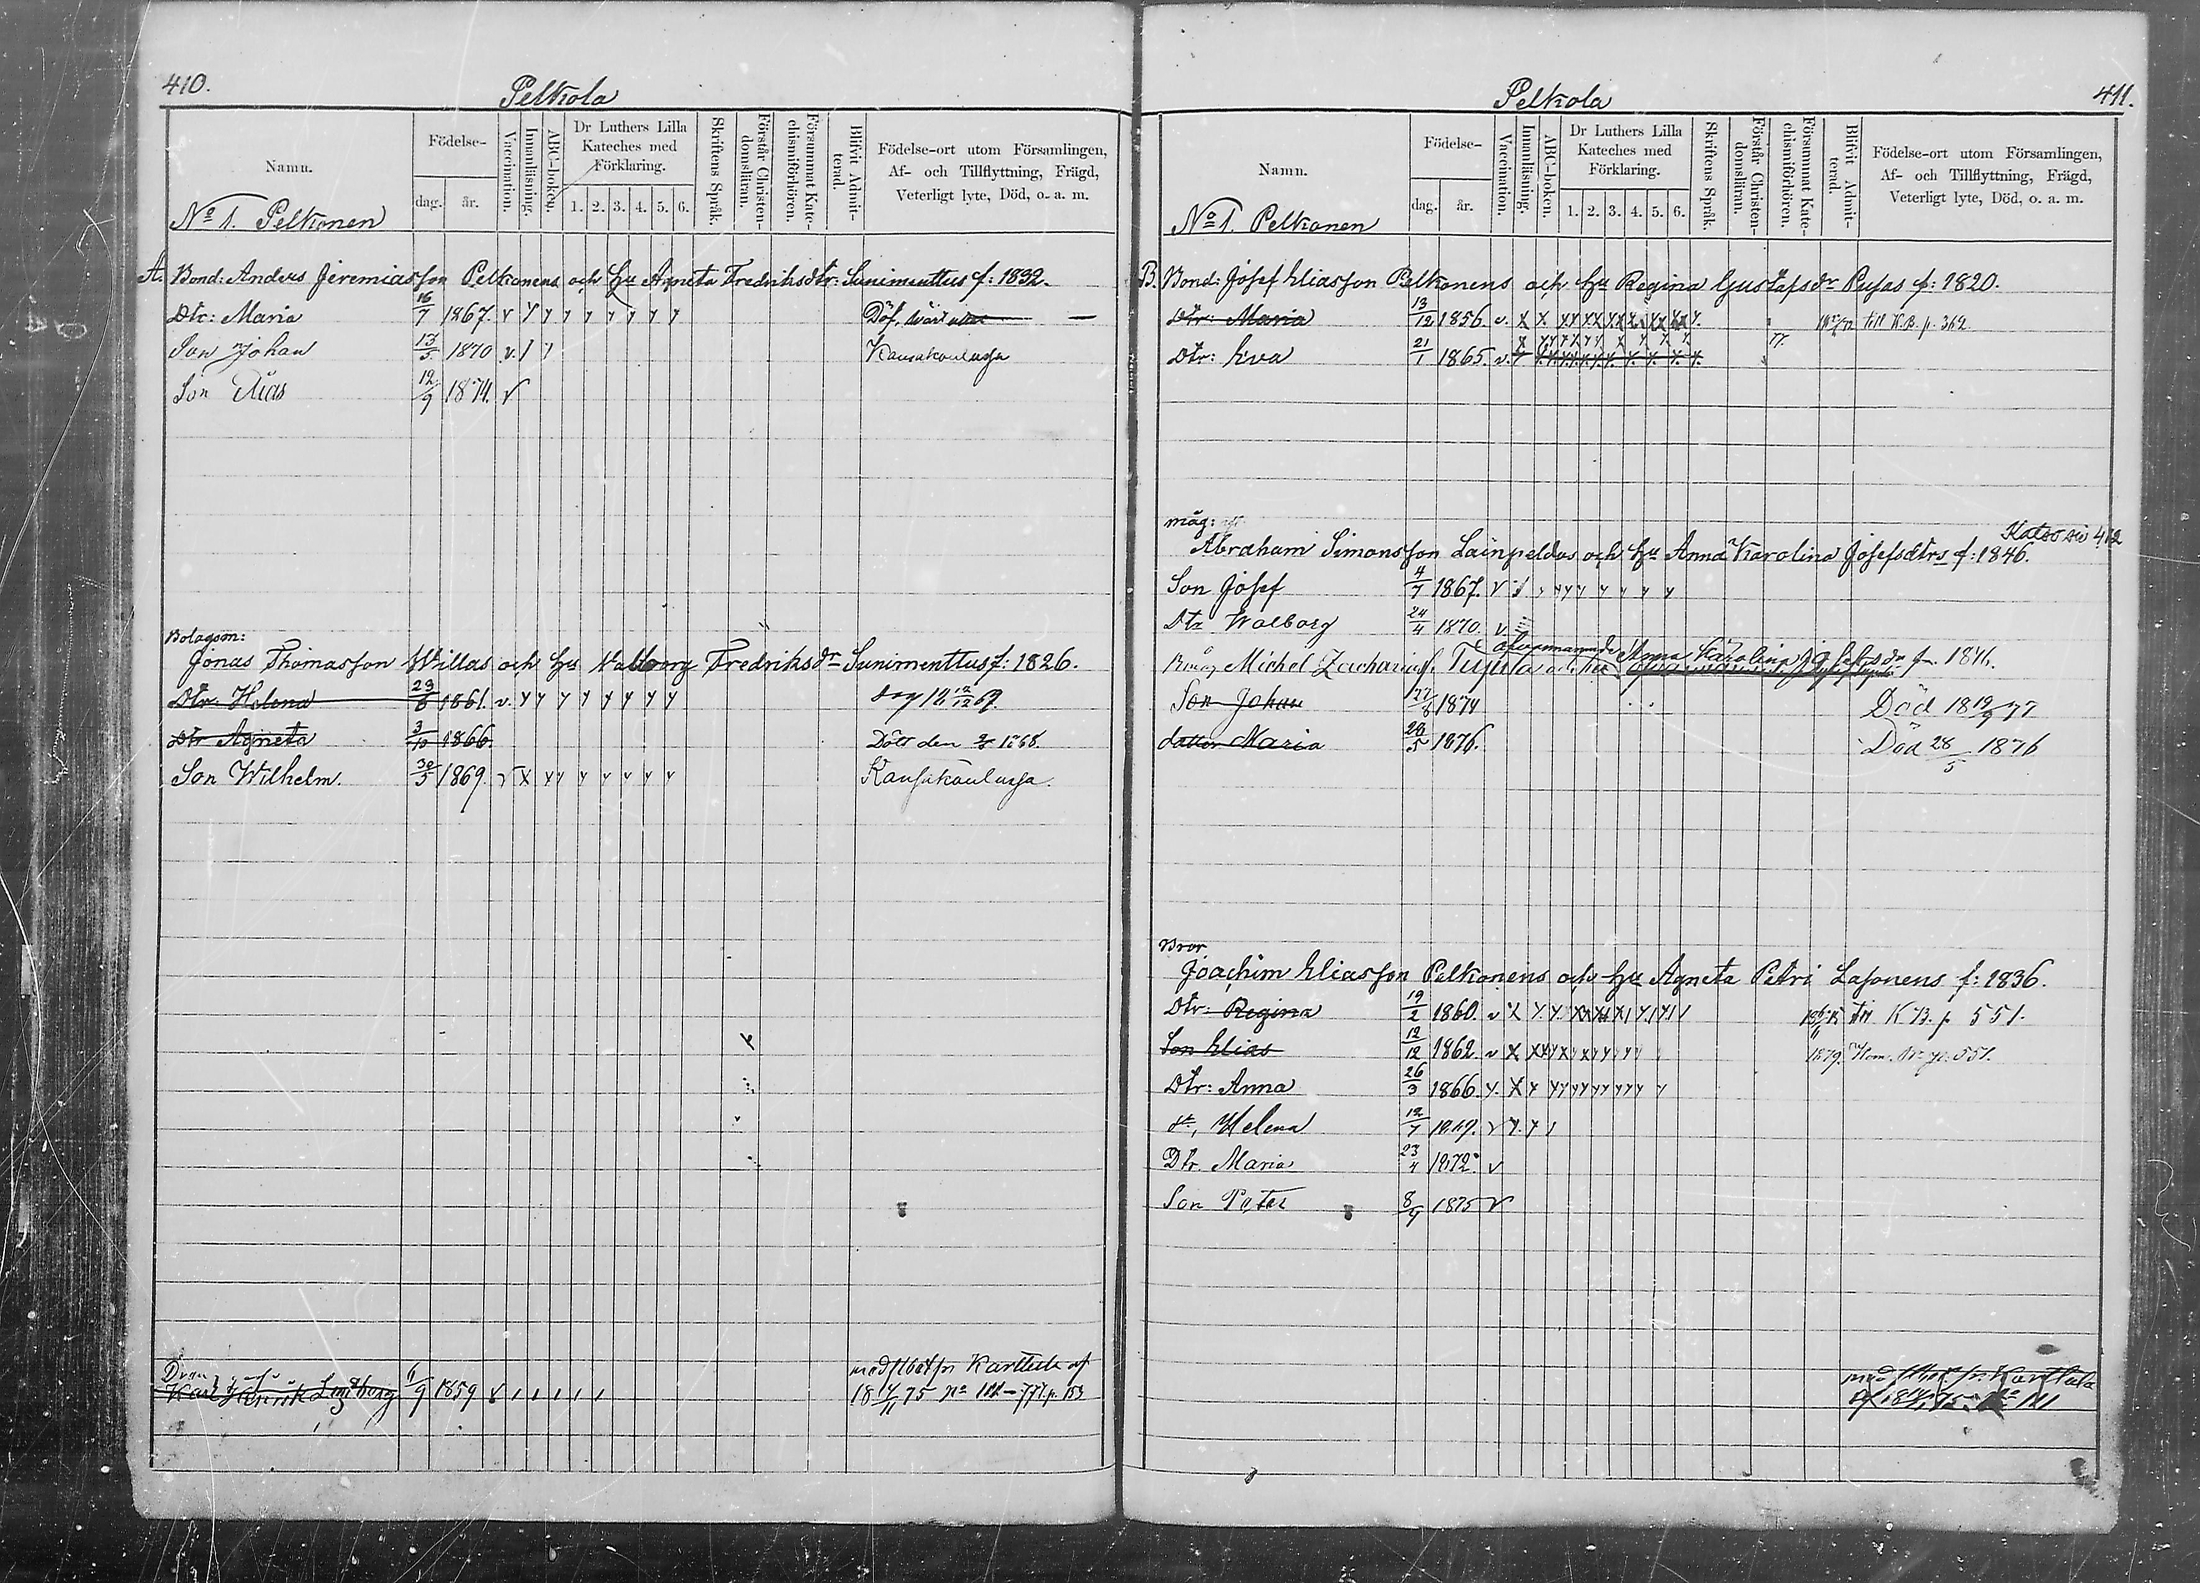 410.
Pelkola
Namn.
Födelse-
dag.
år.
Vaccination.
Innanläsning.
ABC-boken.
Dr Luthers Lilla
Kateches med
Förklaring.
1. 2. 3. 4. 5. 6.
Skriftens Språk.
Förstår Christen-
domsläran.
Försummat Kate-
chismiförhören.
Blifvit Admit-
terad.
Födelse-ort utom Församlingen,
Af- och Tillflyttning, Frägd,
Veterligt lyte, Död, o. a. m.
No 1. Pelkonen
A. Bond: Anders Jeremiasson Pelkonens och Hu Agneta Fredriksdtr: Sunimenttus f: 1832.
Dtr: Maria 16/7 1867. v
Son Johan 13/5 1870 v. Kansakoulussa
Son Elias 12/9 1874. v
Bolagsm:
Jonas Thomasson Willas och Hu Walborg Fredriksdr Sunimenttus f: 1826.
Dtr: Helena 23/6 1861. v.
Dtr Agneta 3/10 1866. Död den 1868.
Son Wilhelm. 30/5 1869. v Kansakoulussa.
Karl Henrik 6/9 1859 v
Karttula
18 4/11 75 p. 153
Pelkola
411.
Namn.
Födelse-
dag.
år.
Vaccination.
Innanläsning.
ABC-boken.
Dr Luthers Lilla
Kateches med
Förklaring.
1. 2. 3. 4. 5. 6.
Skriftens Språk.
Förstår Christen-
domsläran.
Försummat Kate-
chismiförhören.
Blifvit Admit-
terad.
Födelse-ort utom Församlingen,
Af- och Tillflyttning, Frägd,
Veterligt lyte, Död, o. a. m.
No 1. Pelkonen
B. Bond: Josef Eliasson Pelkonens och Hu Regina Gustafsdr Pusas f: 1820.
Dtr: Maria 13/12 1856. v. till K.B. p. 362
Dtr: Eva 21/1 1865. v. 77.
måg:
Katso siv 412
Abraham Simonsson Lainpeldas och Hu Anna Karolina Josefsdtrs f: 1846.
Son Josef 4/7 1867. v
Dtr Walborg 24/4 1870. v.
Michel Zachariss. Anna Karolina Josefsdr f. 1846.
Son Johan 22/8 1874 Död 18 19/9 77
dotter Maria 28/5 1876. Död 28/5 1876
Bror
Joachim Eliasson Pelkonens och Hu Agneta Petri Lasonens f: 1836.
Dtr: Regina 19/2 1860. v K B. p 551.
Son Elias 12/12 1862 v 1879. p. 551.
Dtr: Anna 26/3 1866. v.
dr, Helena 12/7 1869. v
Dtr Maria 23/4 1872 v
Son Peter 8/9 1875 v
Karttula